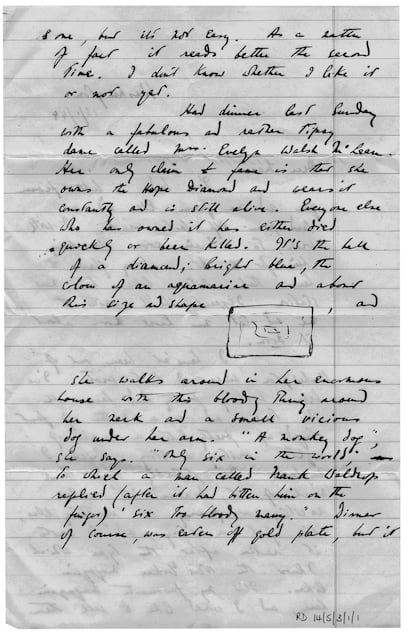 & one, but it's not easy. As a matter
of fact it reads better the second
time. I don't know whether I like it
or not yet.
Had dinner last Sunday
with a fabulous and rather tipsy
dame called Mrs. Evelyn Walsh McLean.
Her only claim to fame is that she
owns the Hope Diamond and wears it
constantly and is still alive. Everyone else
who has owned it has either died
quickly or been killed. It's the hell
of a diamond; bright blue, the
colour of an aquamarine and about
this size and shape , and
she walks around in her enormous
house with this bloody thing around
her neck and a small vicious
dog under her arm. "A monkey dog",
she says. "Only six in the world,"
to which a man called Frank Waldrop
replied (after it had bitten him on the
finger) 'six too bloody many." Dinner
of course, was eaten off gold plate, but it
RD 14/5/3/1/1